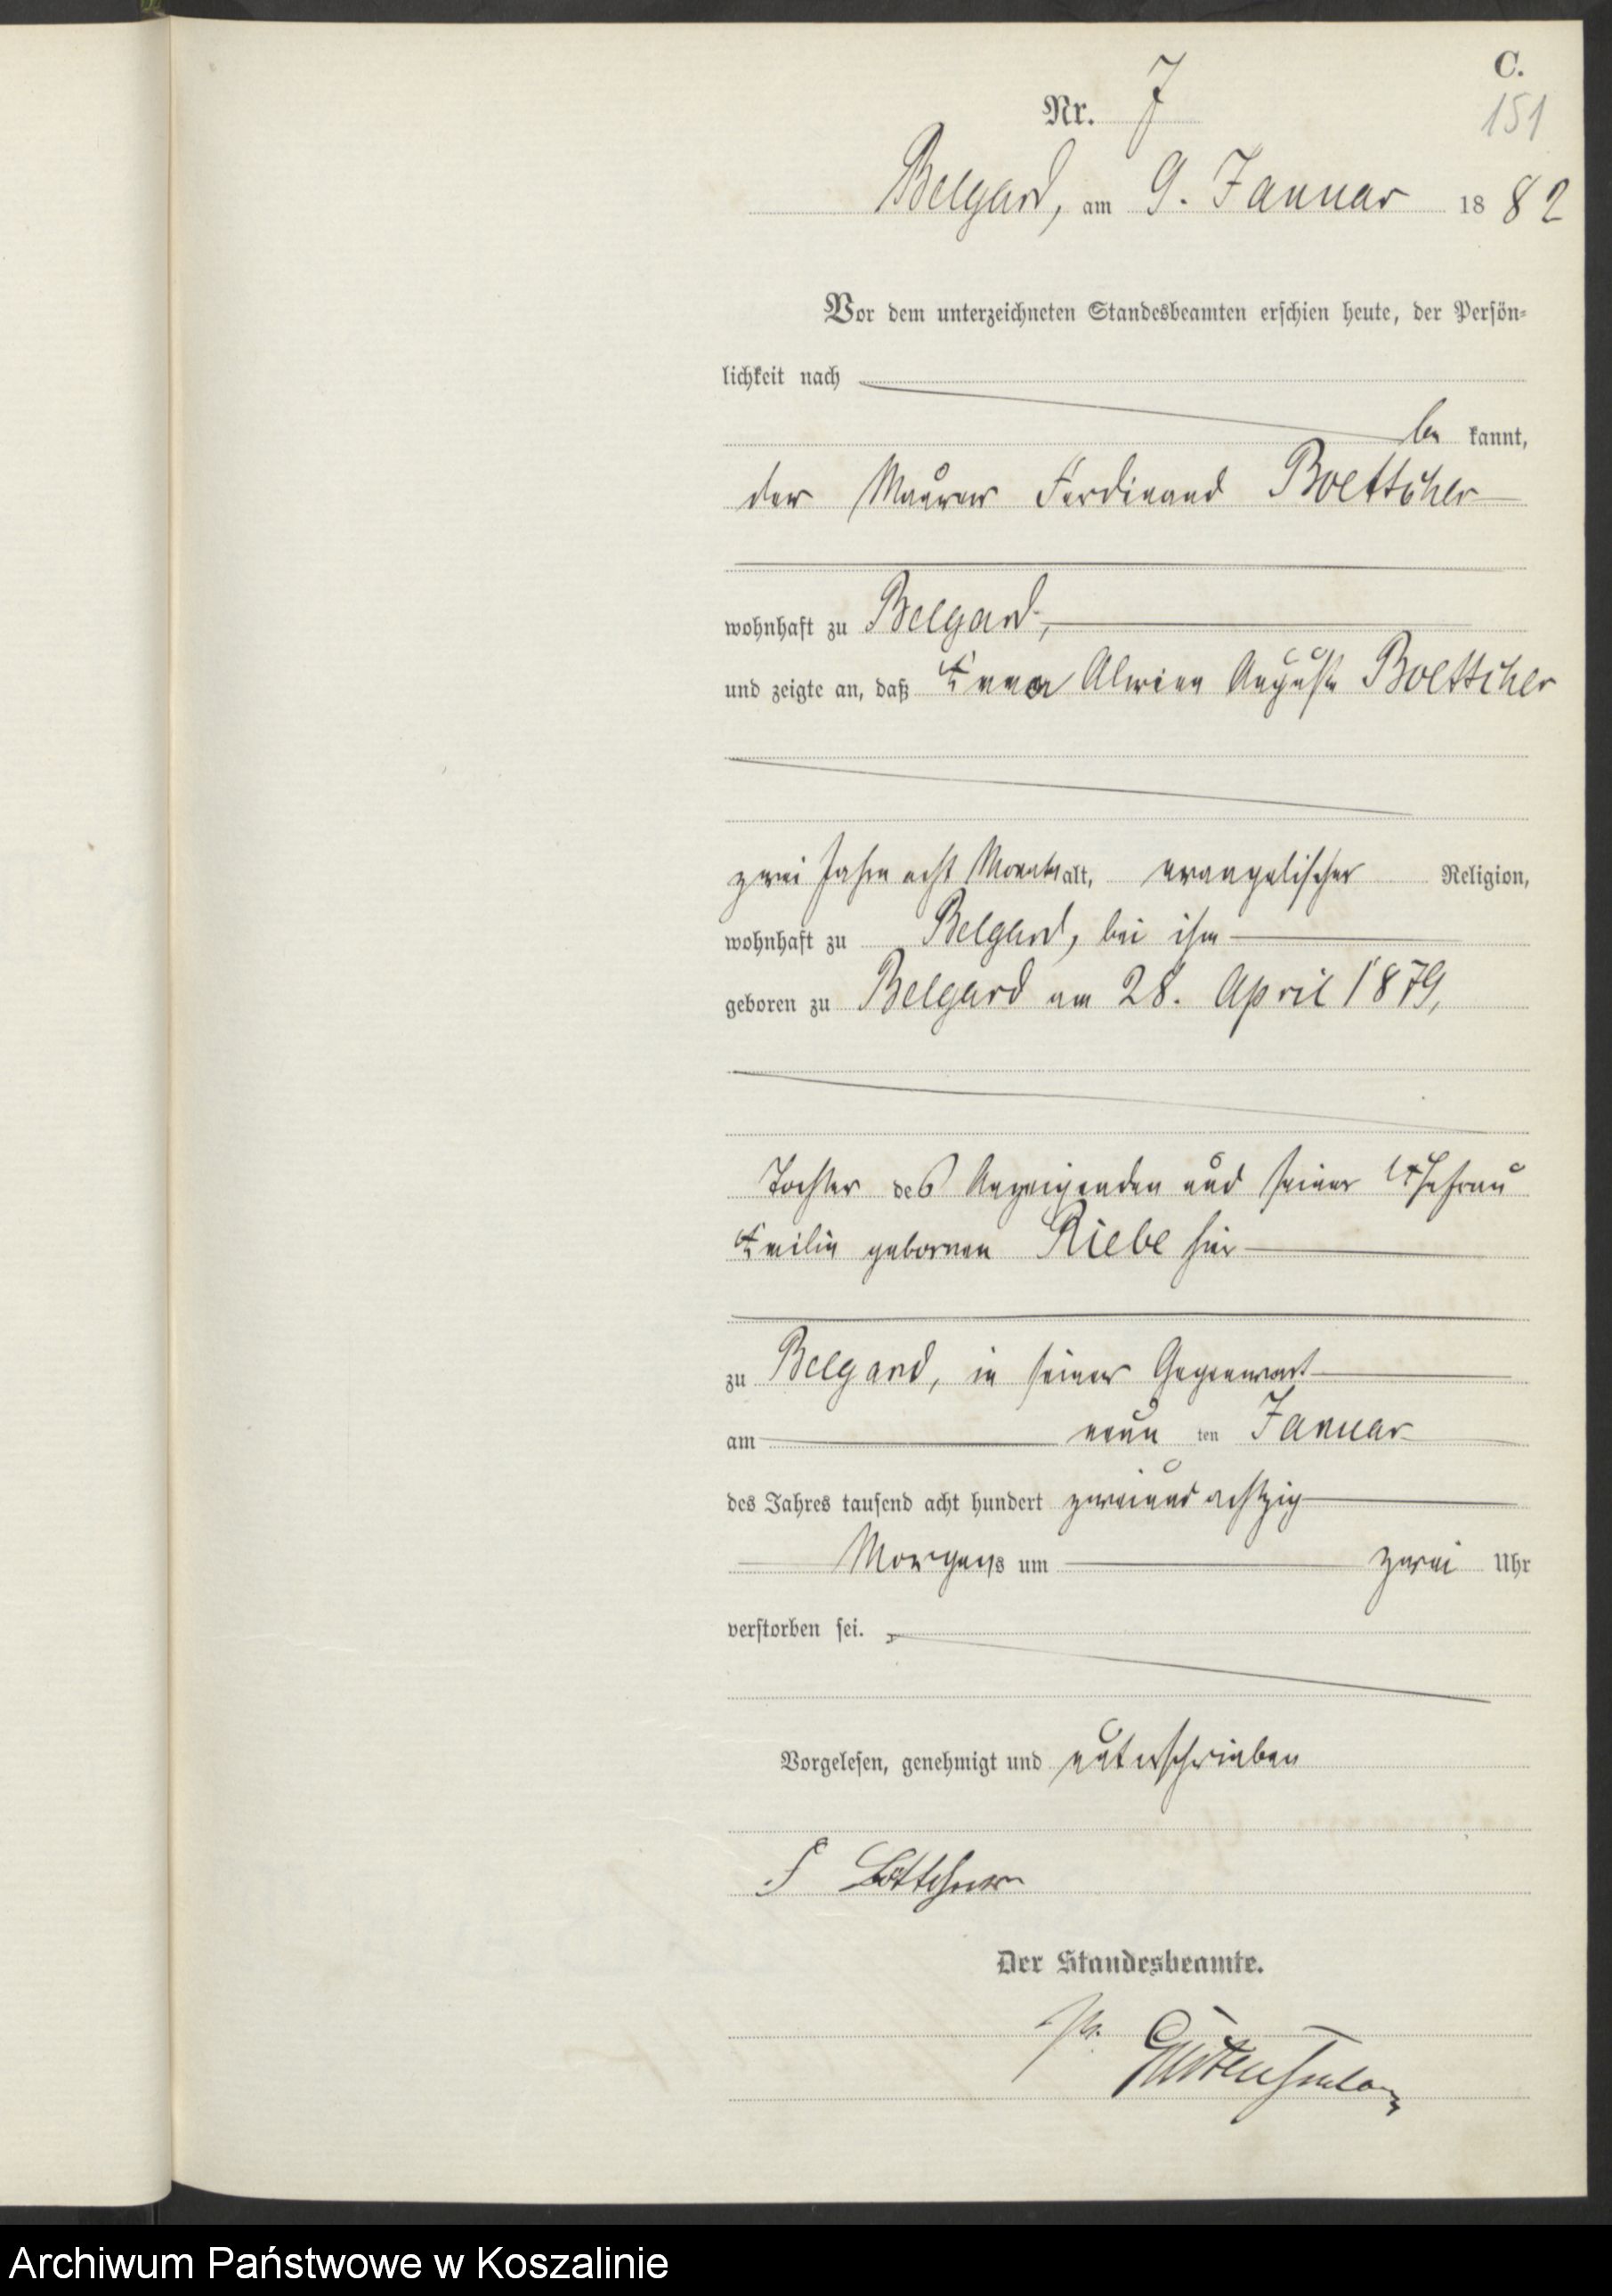 C.
Nr. 7
151
Belgard, am 9. Januar 1882
Vor dem unterzeichneten Standesbeamten erschien heute, der Persön-
lichkeit nach
be kannt,
der Maurer Ferdinand Boettcher
wohnhaft zu Belgard,
und zeigte an, daß Emma Alwine Auguste Boettcher
zwei Jahre acht Monate alt, evangelischer Religion,
wohnhaft zu Belgard, bei ihm
geboren zu Belgard am 28. April 1879,
Tochter des Anzeigenden und seiner Ehefrau
Emilie geborenen Riebe hier
zu Belgard, in seiner Gegenwart
am neun ten Januar
des Jahres tausend acht hundert zweiundachtzig
Morgens um zwei Uhr
verstorben sei.
Vorgelesen, genehmigt und unterschrieben
F Böttcher
Der Standesbeamte.
Archiwum Państwowe w Koszalinie